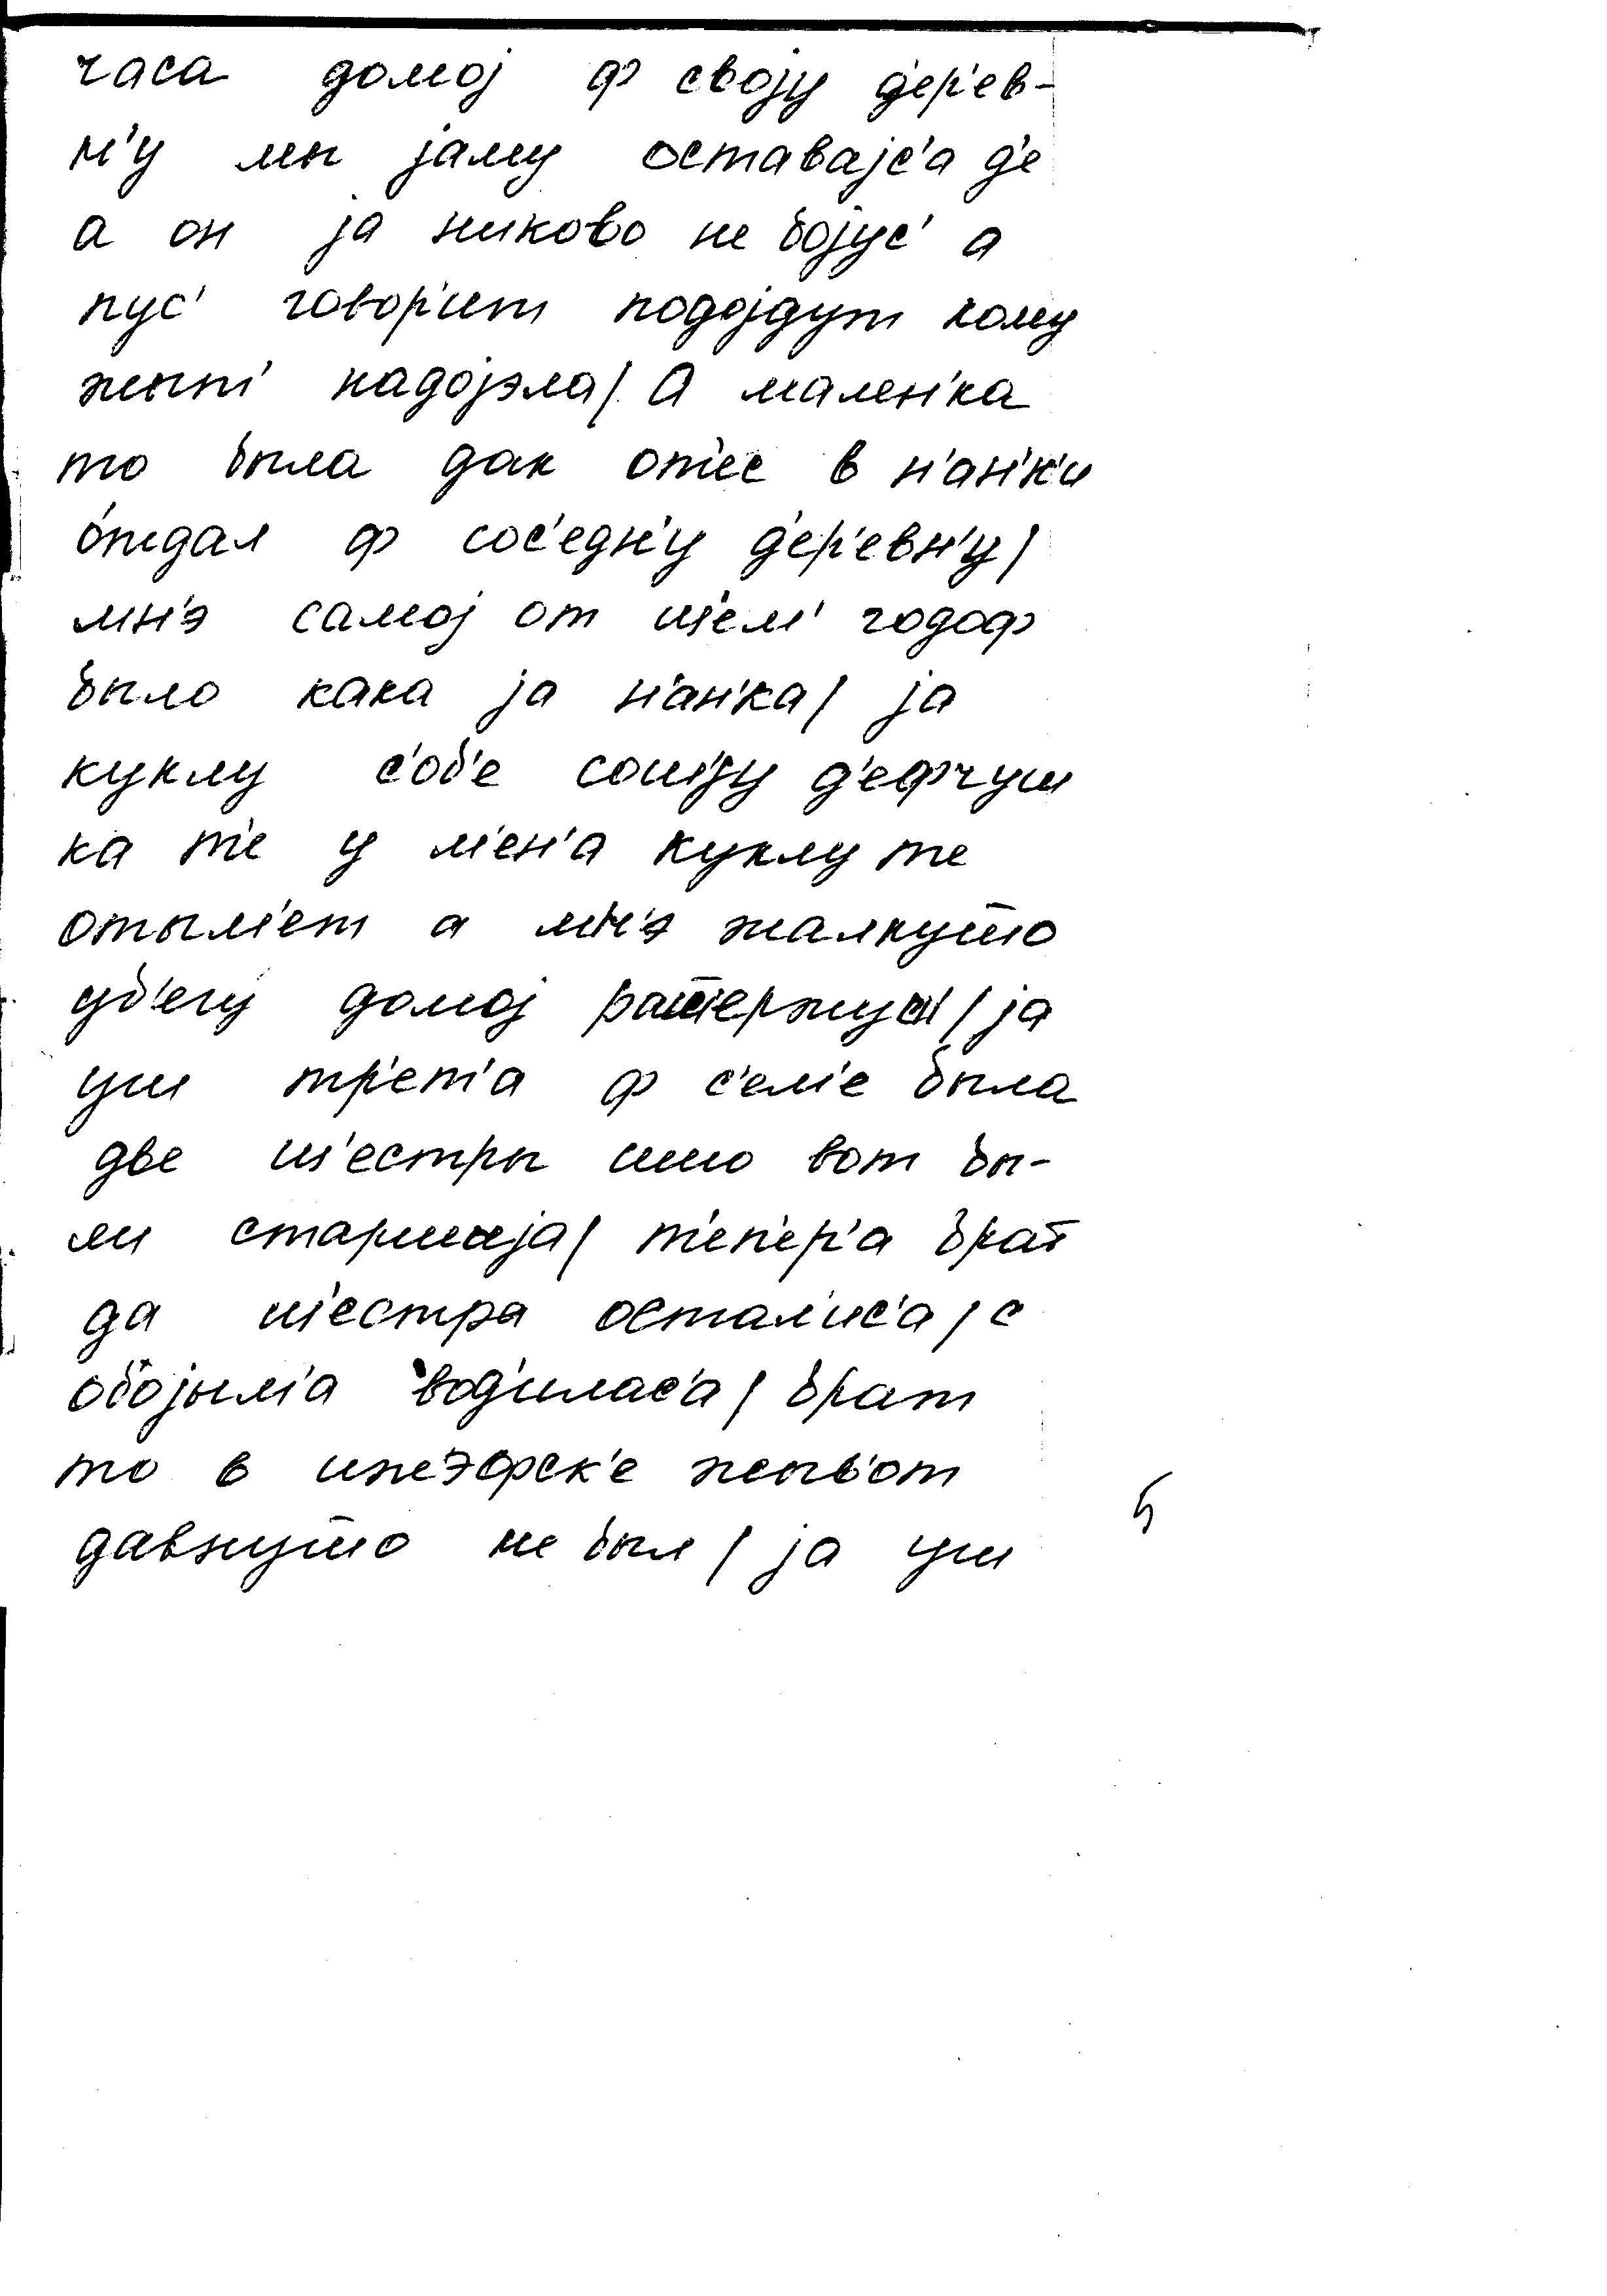 часа домој ф своју д'ер'ев-
н'у мы јаму оставајс'а д'е
а он ја никово не бојус' а
пус' говор'ит подојдут кому
жыт' надојэла/. А мален'ка
то была дак от'ес в н'ан'к'и
о́тдал ф сос'едн'у д'ер'евн'у/
мн'э самој от ш'ем' годоф
было кака ја н'ан'ка/ ја
куклу с'об'е сошју д'ефчуш
ка т'е у м'ен'а куклу те
отым'ет а мн'э жалкуто
уб'егу домој / ја
уш тр'ет'а ф с'ем'е была
две ш'естры што вот бы-
ли старшыја/ т'еп'ер'а брат
да ш'естра остал'ис'a/ с
обојым'а вод'илас'а/ брат
то в ижэфск'е жыв'от
давнуто не был/ ја уш
5